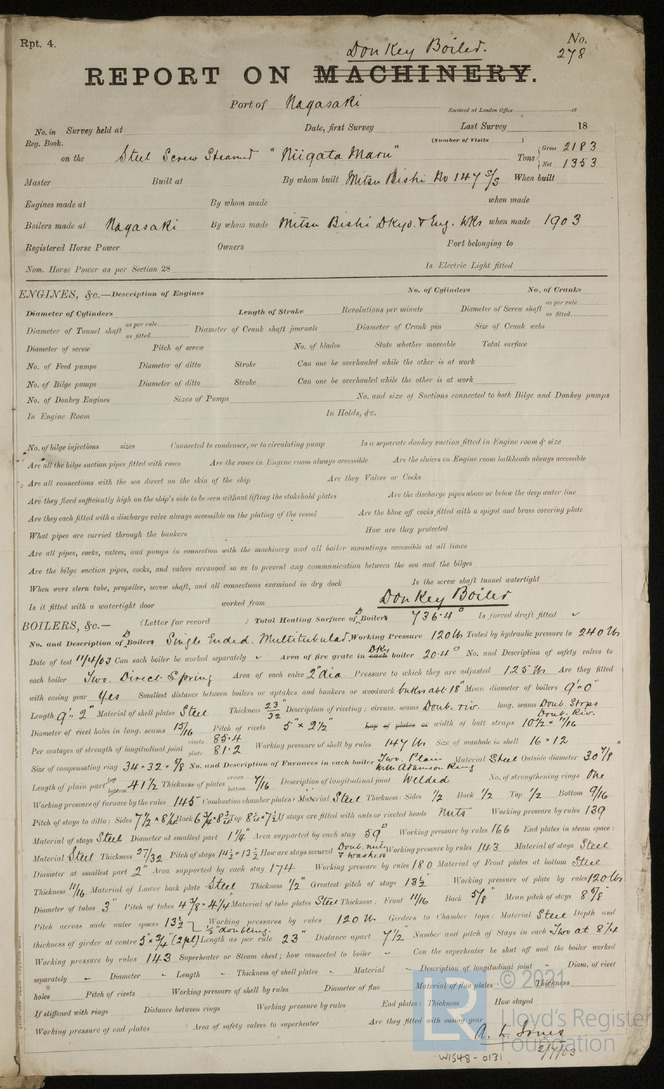 Rpt. 4.
Donkey Boiler.
No. 278
REPORT ON MACHINERY.
Port of Nagasaki
Received at London Office 18
No. in Survey held at Date, first Survey Last Survey 18
Reg. Book. (Number of Visits )
on the Steel Screw Steamer "Niigata Maru" Tons { Gross 2183
Net 1353
Master Built at By whom built Mitsu Bishi No 147 S/S When built
Engines made at By whom made when made
Boilers made at Nagasaki By whom made Mitsu Bishi Dkyd. & Eng. Wks when made 1903
Registered Horse Power Owners Port belonging to
Nom. Horse Power as per Section 28 Is Electric Light fitted
ENGINES, &c.—Description of Engines No. of Cylinders No. of Cranks
Diameter of Cylinders Length of Stroke Revolutions per minute Diameter of Screw shaft as per rule as fitted
Diameter of Tunnel shaft as per rule as fitted Diameter of Crank shaft journals Diameter of Crank pin Size of Crank webs
Diameter of screw Pitch of screw No. of blades State whether moveable Total surface
No. of Feed pumps Diameter of ditto Stroke Can one be overhauled while the other is at work
No. of Bilge pumps Diameter of ditto Stroke Can one be overhauled while the other is at work
No. of Donkey Engines Sizes of Pumps No. and size of Suctions connected to both Bilge and Donkey pumps
In Engine Room In Holds, &c.
No. of bilge injections sizes Connected to condenser, or to circulating pump Is a separate donkey suction fitted in Engine room & size
Are all the bilge suction pipes fitted with roses Are the roses in Engine room always accessible Are the sluices on Engine room bulkheads always accessible
Are all connections with the sea direct on the skin of the ship Are they Valves or Cocks
Are they fixed sufficiently high on the ship's side to be seen without lifting the stokehold plates Are the discharge pipes above or below the deep water line
Are they each fitted with a discharge valve always accessible on the plating of the vessel Are the blow off cocks fitted with a spigot and brass covering plate
What pipes are carried through the bunkers How are they protected
Are all pipes, cocks, valves, and pumps in connection with the machinery and all boiler mountings accessible at all times
Are the bilge suction pipes, cocks, and valves arranged so as to prevent any communication between the sea and the bilges
When were stern tube, propeller, screw shaft, and all connections examined in dry dock Is the screw shaft tunnel watertight
Is it fitted with a watertight door worked from Donkey Boiler
BOILERS, &c.— (Letter for record ) Total Heating Surface of D Boilers 736.4 □ Is forced draft fitted ✓
No. and Description of D Boilers Single Ended. Multitubular. Working Pressure 120 lb Tested by hydraulic pressure to 240 lb
Date of test 11/4/03 Can each boiler be worked separately ✓ Area of fire grate in each Dky boiler 20.4 □ No. and Description of safety valves to
each boiler Two. Direct Spring Area of each valve 2" dia Pressure to which they are adjusted 125 lb Are they fitted
with easing gear Yes Smallest distance between boilers or uptakes and bunkers or woodwork bulks abt 18" Mean diameter of boilers 9'-0"
Length 9'-2" Material of shell plates Steel Thickness 23/32 Description of riveting: circum. seams Doub. riv. long. seams Doub. Straps Doub. Riv.
Diameter of rivet holes in long. seams 15/16 Pitch of rivets 5" × 2 1/2" Lap of plates or width of butt straps 10 1/2 × 11/16
Per centages of strength of longitudinal joint rivets 85.4 plate 81.2 Working pressure of shell by rules 147 lb Size of manhole in shell 16 × 12
Size of compensating ring 34 × 32 × 7/8 No. and Description of Furnaces in each boiler Two. Plain with Adamson Ring Material Steel Outside diameter 30 7/8"
Length of plain part top bottom 41 1/2 Thickness of plates crown bottom 7/16 Description of longitudinal joint Welded No. of strengthening rings One
Working pressure of furnace by the rules 145 Combustion chamber plates: Material Steel Thickness: Sides 1/2 Back 1/2 Top 1/2 Bottom 9/16
Pitch of stays to ditto: Sides 7 1/2 × 8 1/4 Back 6 3/4 × 8 3/4 Top 8 1/4 × 7 1/2 If stays are fitted with nuts or riveted heads Nuts Working pressure by rules 139
Material of stays Steel Diameter at smallest part 1 1/4" Area supported by each stay 59 □ Working pressure by rules 166 End plates in steam space:
Material Steel Thickness 27/32 Pitch of stays 14 1/2 × 13 1/2 How are stays secured Doub. nuts & washers Working pressure by rules 143 Material of stays Steel
Diameter at smallest part 2" Area supported by each stay 174 Working pressure by rules 180 Material of Front plates at bottom Steel
Thickness 11/16 Material of Lower back plate Steel Thickness 1/2" Greatest pitch of stays 13 1/2 Working pressure of plate by rules 120 lb
Diameter of tubes 3" Pitch of tubes 4 3/8 - 4 1/4 Material of tube plates Steel Thickness: Front 11/16 Back 5/8" Mean pitch of stays 8 5/8"
Pitch across wide water spaces 13 1/2 1/2" doubling. Working pressures by rules 120 lb Girders to Chamber tops: Material Steel Depth and
thickness of girder at centre 5" × 3/4" (2 pl) Length as per rule 23" Distance apart 7 1/2" Number and pitch of Stays in each Two at 8 1/4
Working pressure by rules 143 Superheater or Steam chest; how connected to boiler - Can the superheater be shut off and the boiler worked
separately - Diameter - Length - Thickness of shell plates - Material - Description of longitudinal joint - Diam. of rivet
holes Pitch of rivets Working pressure of shell by rules Diameter of flue Material of flue plates Thickness
If stiffened with rings Distance between rings Working pressure by rules End plates: Thickness How stayed
Working pressure of end plates Area of safety valves to superheater Are they fitted with easing gear
A. L. Jones
2/7/03
© 2021
Lloyd's Register
Foundation
W1548-0131